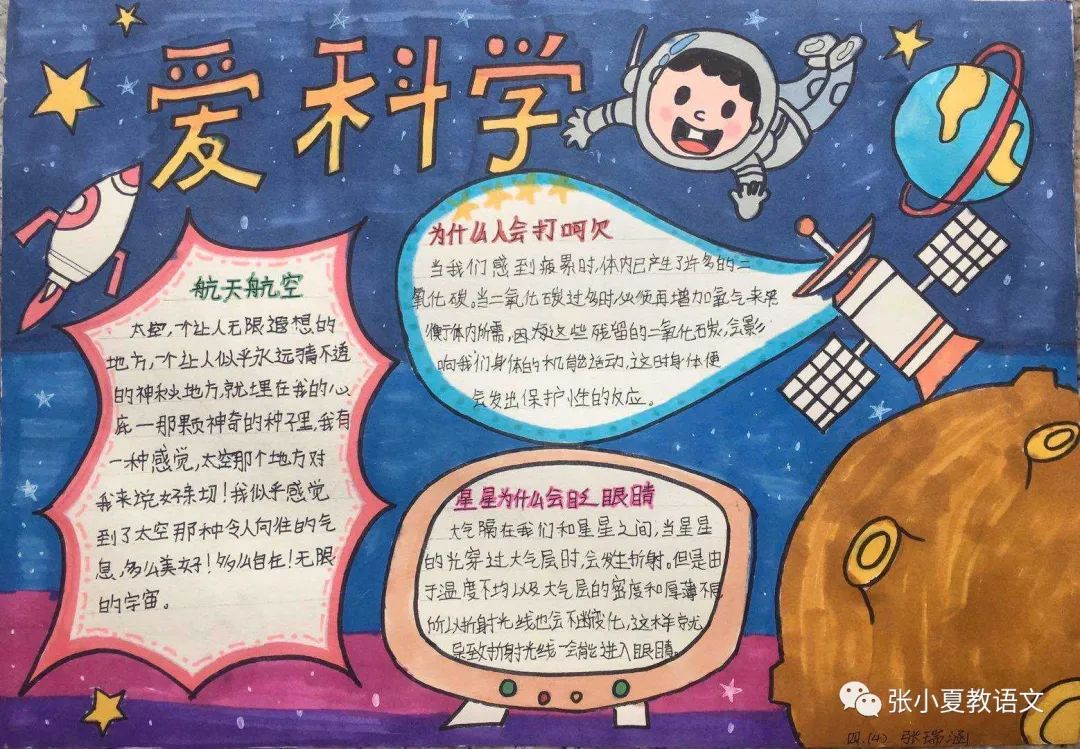 爱科学
航天航空
太空,一个让人无限遐想的
地方,一个让人似乎永远猜不透
的神秘地方,就埋在我的心
底一那颗神奇的种子里,我有
一种感觉,太空那个地方对
我来说好亲切!我似乎感觉
到了太空那种令人向往的气
息,多么美好!多么自在!无限
的宇宙。
为什么人会打呵欠
当我们感到疲累时,体内已产生了许多的二
氧化碳。当二氧化碳过多时,必须再增加氧气来平
衡体内所需,因为这些残留的二氧化碳,会影
响我们身体的机能运动,这时身体便
会发出保护性的反应。
星星为什么会眨眼睛
大气隔在我们和星星之间,当星星
的光穿过大气层时,会发生折射。但是由
于温度不均以及大气层的密度和厚薄不同
所以折射光线也会不断变化,这样就
导致折射光线一会能进入眼睛。
张小夏教语文
四.(4) 张瑞涵